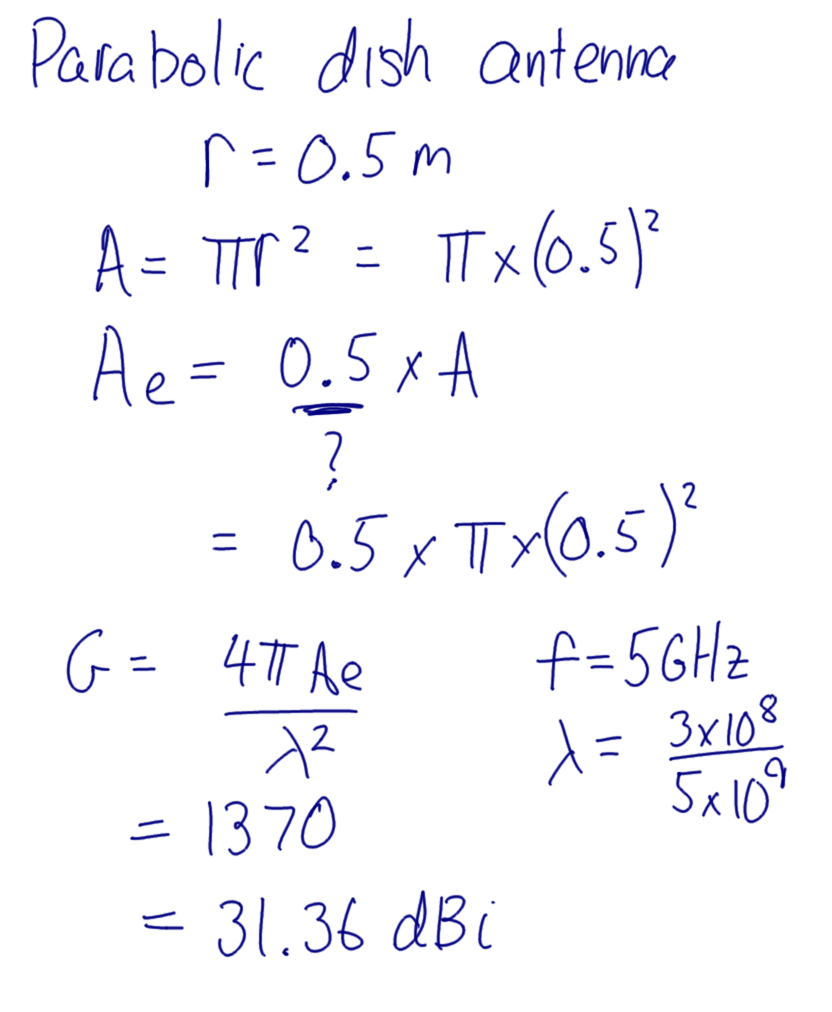 Parabolic dish antenna
r = 0.5 m
A = πr² = π x (0.5)²
Ae = 0.5 x A
?
= 0.5 x π x (0.5)²
G = 4π Ae / λ²
f = 5GHz
λ = 3x10⁸ / 5x10⁹
= 1370
= 31.36 dBi